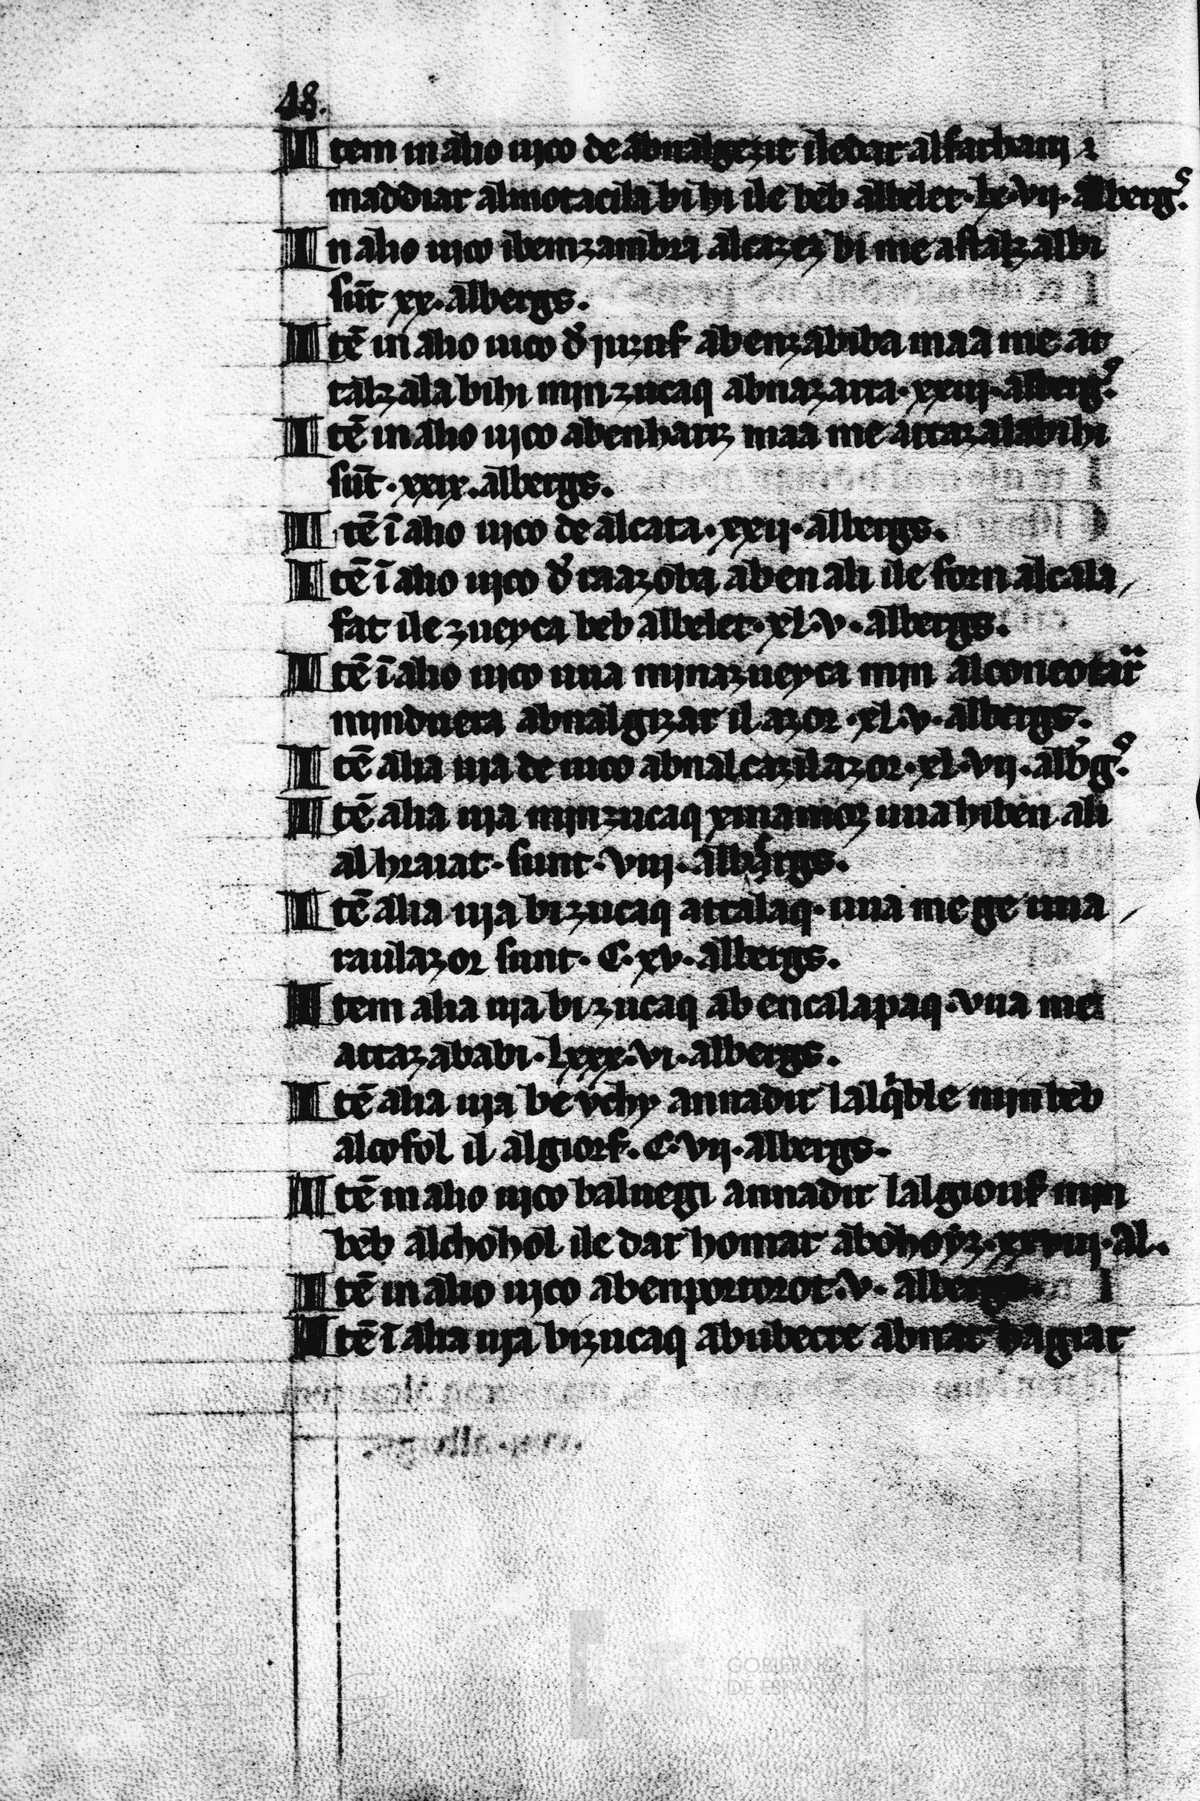 48.
Item in alio uico de abnalgezit iledar alfachauj ⁊
maddiar almotacila bi hi ile beb albelet·lx·vij·alberg᷒.
In alio uico ibemzambra alcazez bi me astalz albi
sūt xx·albergs.
Itē in alio uico d̉ juzuf abenzabiba maa me at
talz ala bihi min zucaq abnazarra·xxiij·alberg᷒.
Itē in alio uico abenhariz maa me attazalabihi
sūt·xxix.albergs.
Itē ī alio uico de alcata·xxij·albergs.
Itē ī alio uico d̉ caazoba aben ali ile forn alcala
fat ile zueyca beb albelet·xl·v·albergs.
Itē ī alio uico una minazueyca min
minduera abnalgizar il azor·xl·v·albergs.
Itē alia uia de uico abnalcazilazor·xl·vij·
Itē alia uia min zucaq una hiben ali
al hraiat·sunt·viij·
Itē alia uia bizucaq attalaq·una me ge una
raulazor sunt·C·xv·albergs.
Item alia uia bizucaq abencalapaq·vna me
attazababi·lxxx·vi·albergs.
Itē alia uia be vchy annadir lalq̉ble min beb
alcofol il algiorf·C·vij·albergs.
Itē in alio uico baluegi annadir lalgiouf min
beb alchohol ile dar homar ·xxviij·al.
Itē in alio uico abenportorot·v·albergs.
Itē ī alia uia bizucaq abubecre abnar hagiar
GOBIERNO
DE ESPAÑA
MINISTERIO
DE EDUCACIÓN, CULTURA
Y DEPORTE